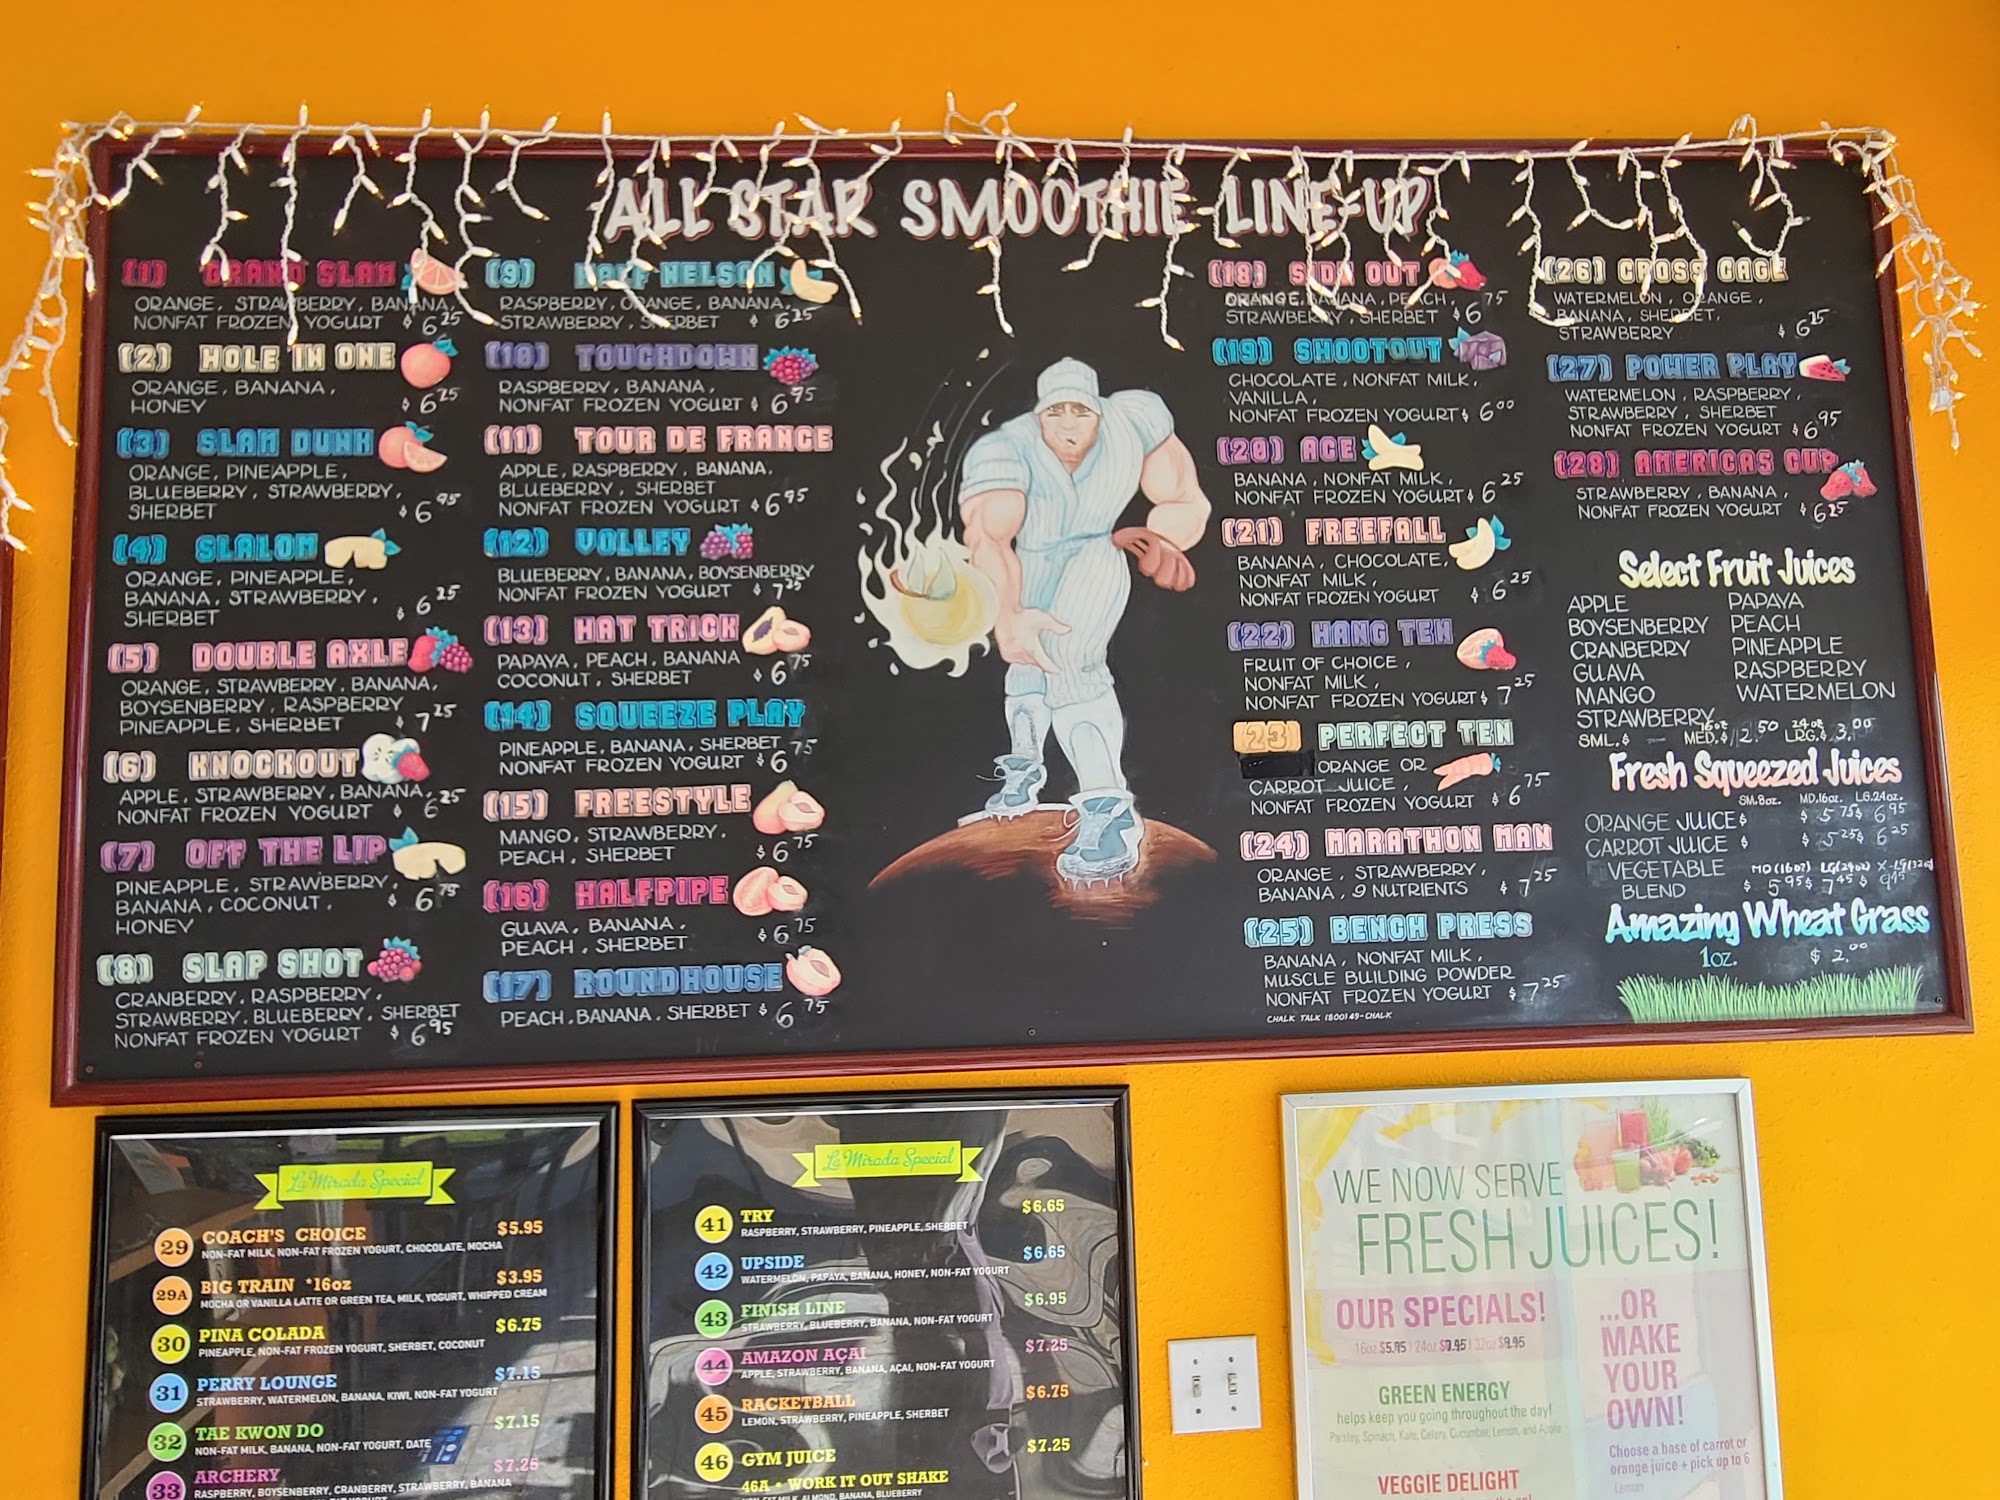 ALL STAR SMOOTHIE LINE-UP
(1) GRAND SLAM
ORANGE, STRAWBERRY, BANANA,
NONFAT FROZEN YOGURT $ 6 25
(2) HOLE IN ONE
ORANGE, BANANA,
HONEY $ 6 25
(3) SLAM DUNK
ORANGE, PINEAPPLE,
BLUEBERRY, STRAWBERRY,
SHERBET $ 6 95
(4) SLALOM
ORANGE, PINEAPPLE,
BANANA, STRAWBERRY,
SHERBET $ 6 25
(5) DOUBLE AXLE
ORANGE, STRAWBERRY, BANANA,
BOYSENBERRY, RASPBERRY
PINEAPPLE, SHERBET $ 7 25
(6) KNOCKOUT
APPLE, STRAWBERRY, BANANA,
NONFAT FROZEN YOGURT $ 6 25
(7) OFF THE LIP
PINEAPPLE, STRAWBERRY,
BANANA, COCONUT,
HONEY $ 6 75
(8) SLAP SHOT
CRANBERRY, RASPBERRY,
STRAWBERRY, BLUEBERRY, SHERBET
NONFAT FROZEN YOGURT $ 6 95
(9) HALF NELSON
RASPBERRY, ORANGE, BANANA,
STRAWBERRY, SHERBET $ 6 25
(10) TOUCHDOWN
RASPBERRY, BANANA,
NONFAT FROZEN YOGURT $ 6 95
(11) TOUR DE FRANCE
APPLE, RASPBERRY, BANANA,
BLUEBERRY, SHERBET
NONFAT FROZEN YOGURT $ 6 95
(12) VOLLEY
BLUEBERRY, BANANA, BOYSENBERRY
NONFAT FROZEN YOGURT $ 7 25
(13) HAT TRICK
PAPAYA, PEACH, BANANA
COCONUT, SHERBET $ 6 75
(14) SQUEEZE PLAY
PINEAPPLE, BANANA, SHERBET
NONFAT FROZEN YOGURT $ 6 75
(15) FREESTYLE
MANGO, STRAWBERRY,
PEACH, SHERBET $ 6 75
(16) HALFPIPE
GUAVA, BANANA,
PEACH, SHERBET $ 6 75
(17) ROUNDHOUSE
PEACH, BANANA, SHERBET $ 6 75
(18) SIDE OUT
ORANGE, BANANA, PEACH,
STRAWBERRY, SHERBET $ 6 75
(19) SHOOTOUT
CHOCOLATE, NONFAT MILK,
VANILLA,
NONFAT FROZEN YOGURT $ 6 00
(20) ACE
BANANA, NONFAT MILK,
NONFAT FROZEN YOGURT $ 6 25
(21) FREEFALL
BANANA, CHOCOLATE,
NONFAT MILK,
NONFAT FROZEN YOGURT $ 6 25
(22) HANG TEN
FRUIT OF CHOICE,
NONFAT MILK,
NONFAT FROZEN YOGURT $ 7 25
(23) PERFECT TEN
ORANGE OR
CARROT JUICE,
NONFAT FROZEN YOGURT $ 6 75
(24) MARATHON MAN
ORANGE, STRAWBERRY,
BANANA, 9 NUTRIENTS $ 7 25
(25) BENCH PRESS
BANANA, NONFAT MILK,
MUSCLE BUILDING POWDER
NONFAT FROZEN YOGURT $ 7 25
CHALK TALK (800) 49-CHALK
(26) CROSS CAGE
WATERMELON, ORANGE,
BANANA, SHERBET,
STRAWBERRY $ 6 25
(27) POWER PLAY
WATERMELON, RASPBERRY,
STRAWBERRY, SHERBET
NONFAT FROZEN YOGURT $ 6 95
(28) AMERICAS CUP
STRAWBERRY, BANANA,
NONFAT FROZEN YOGURT $ 6 25
Select Fruit Juices
APPLE PAPAYA
BOYSENBERRY PEACH
CRANBERRY PINEAPPLE
GUAVA RASPBERRY
MANGO WATERMELON
STRAWBERRY
SML. $ 16oz MED. $ 2.50 24oz LRG. $ 3.00
Fresh Squeezed Juices
SM. 8oz. MD. 16oz. LG. 24oz.
ORANGE JUICE $ $ 5 75 $ 6 95
CARROT JUICE $ $ 5 25 $ 6 25
VEGETABLE MD (16oz) LG (24oz) X-LG (32oz)
BLEND $ 5 95 $ 7 45 $ 9 45
Amazing Wheat Grass
1oz. $ 2.00
La Mirada Special
29 COACH'S CHOICE $5.95
NON-FAT MILK, NON-FAT FROZEN YOGURT, CHOCOLATE, MOCHA
29A BIG TRAIN *16oz $3.95
MOCHA OR VANILLA LATTE OR GREEN TEA, MILK, YOGURT, WHIPPED CREAM
30 PINA COLADA $6.75
PINEAPPLE, NON-FAT FROZEN YOGURT, SHERBET, COCONUT
31 PERRY LOUNGE $7.15
STRAWBERRY, WATERMELON, BANANA, KIWI, NON-FAT YOGURT
32 TAE KWON DO $7.15
NON-FAT MILK, BANANA, NON-FAT YOGURT, DATE
33 ARCHERY $7.25
RASPBERRY, BOYSENBERRY, CRANBERRY, STRAWBERRY, BANANA
La Mirada Special
41 TRY $6.65
RASPBERRY, STRAWBERRY, PINEAPPLE, SHERBET
42 UPSIDE $6.65
WATERMELON, PAPAYA, BANANA, HONEY, NON-FAT YOGURT
43 FINISH LINE $6.95
STRAWBERRY, BLUEBERRY, BANANA, NON-FAT YOGURT
44 AMAZON AÇAI $7.25
APPLE, STRAWBERRY, BANANA, AÇAI, NON-FAT YOGURT
45 RACKETBALL $6.75
LEMON, STRAWBERRY, PINEAPPLE, SHERBET
46 GYM JUICE $7.25
46A • WORK IT OUT SHAKE
NON-FAT MILK, ALMOND, BANANA, BLUEBERRY
WE NOW SERVE
FRESH JUICES!
OUR SPECIALS!
16oz $5.95 | 24oz $7.45 | 32oz $9.95
GREEN ENERGY
helps keep you going throughout the day!
Parsley, Spinach, Kale, Celery, Cucumber, Lemon, and Apple
VEGGIE DELIGHT
...OR
MAKE
YOUR
OWN!
Choose a base of carrot or
orange juice + pick up to 6
Lemon